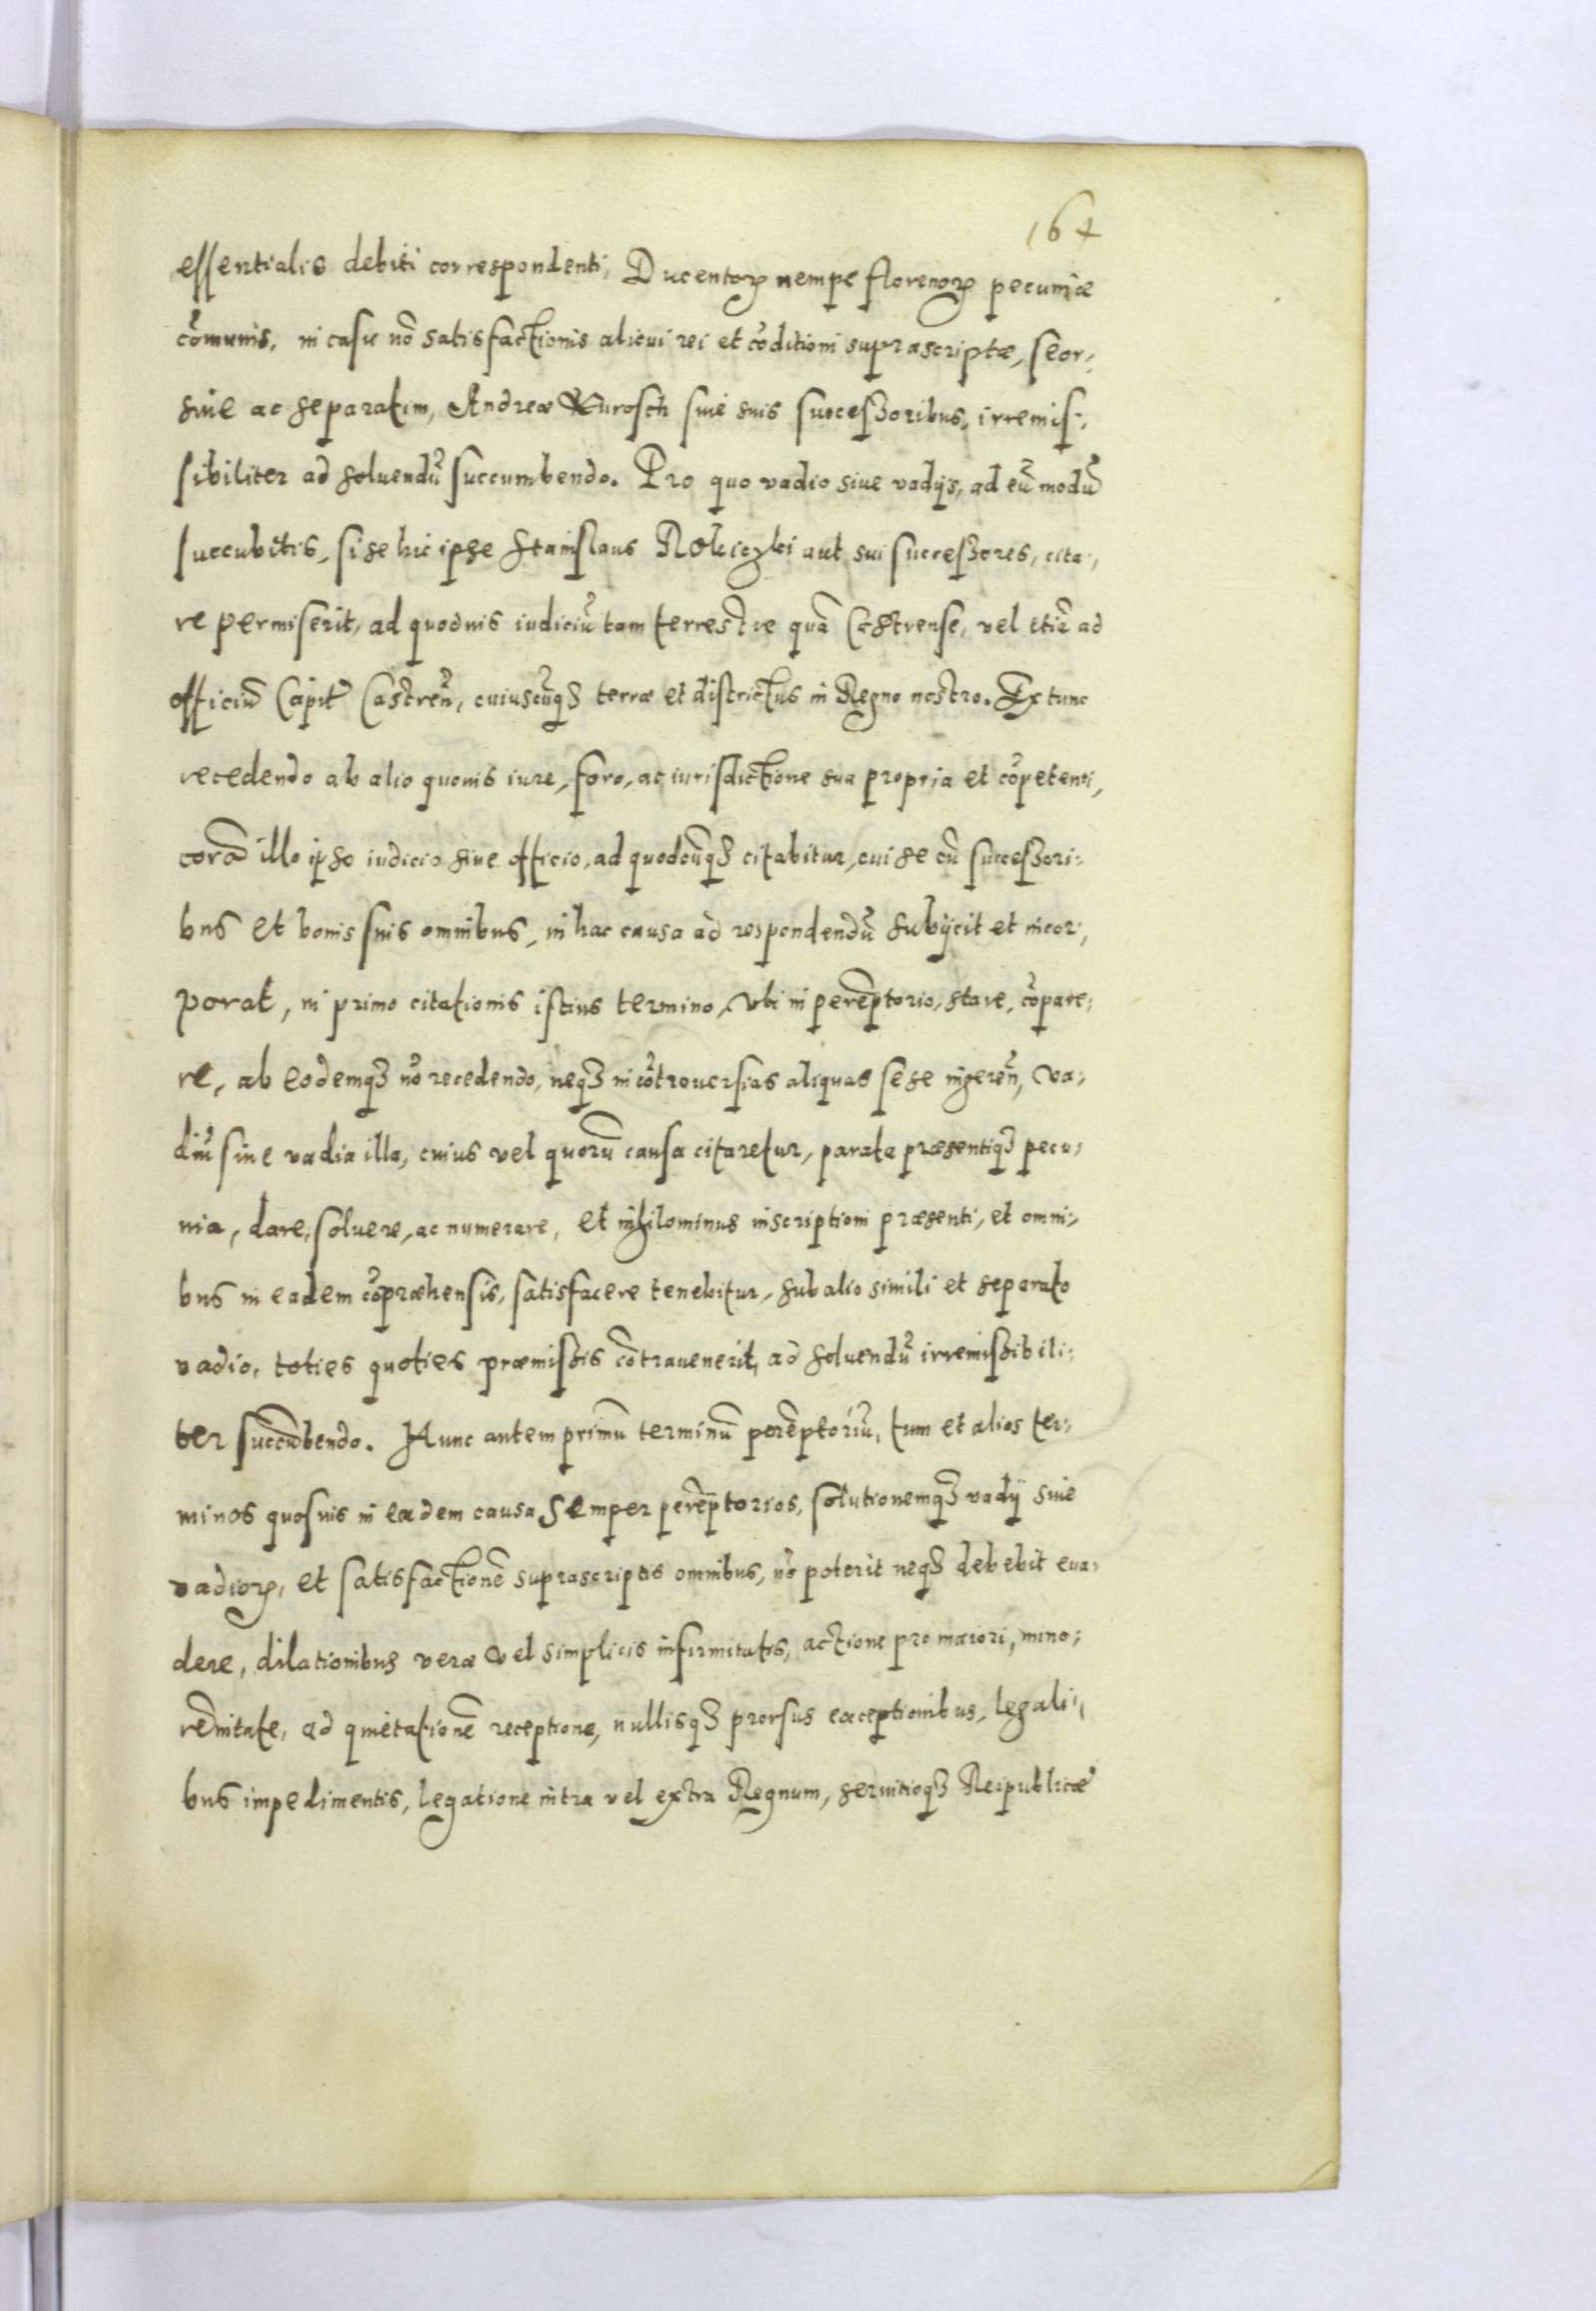 164
essentialis debiti correspondenti, Ducentoꝝ nempe florenoꝝ pecuniæ
cōmunis, in casu nō satisfactionis alicui rei et cōditioni suprascriptæ, seor-
sive ac separatim, Andreæ sive suis successoribus, irremis-
sibiliter ad solvendū succumbendo. Pro quo vadio sive vadijs, ad eū modū
succubitis, si se hic ipse Stanislaus Rokiczki aut sui successores, cita-
re permiserit, ad quodvis iudiciū tam terrestre quā Castrense, vel etiā ad
officiū Capit Castreñ, cuiuscūqꝫ terræ et districtus in Regno nostro. Ex tunc
recedendo ab alio quovis iure, foro, ac iurisdictione sua propria et cōpetenti,
corā illo ipso iudicio sive officio, ad quodcūqꝫ citabitur, cui se cū successori-
bus et bonis suis omnibus, in hac causa ad respondendū subijcit et incor-
porat, in primo citationis istius termino, vti in perēptorio, stare, cōpare-
re, ab eodemqꝫ nō recedendo, neqꝫ in cōtroversias aliquas se se ingereñ, va-
diū sive vadia illa, cuius vel quorū causa citaretur, parata præsentiqꝫ pecu-
nia, dare, solvere, ac numerare, et nihilominus inscriptioni præsenti, et omni-
bus in eadem cōpræhensis, satisfacere tenebitur, sub alio simili et separato
vadio, toties quoties præmissis cōtravenerit, ad solvendū irremissibili-
ter succūbendo. Hunc autem primū terminū perēptoriū, tum et alios ter-
minos quosvis in eadem causa semper perēptorios, solutionemqꝫ vadij sive
vadioꝝ, et satisfactionē suprascriptis omnibus, nō poterit neqꝫ debebit eva-
dere, dilationibus veræ vel simplicis infirmitatis, actione pro maiori, mino-
rēnitate, ad quietationē receptione, nullisqꝫ prorsus exceptionibus, legali-
bus impedimentis, legatione intra vel extra Regnum, servitioqꝫ Reipublicæ